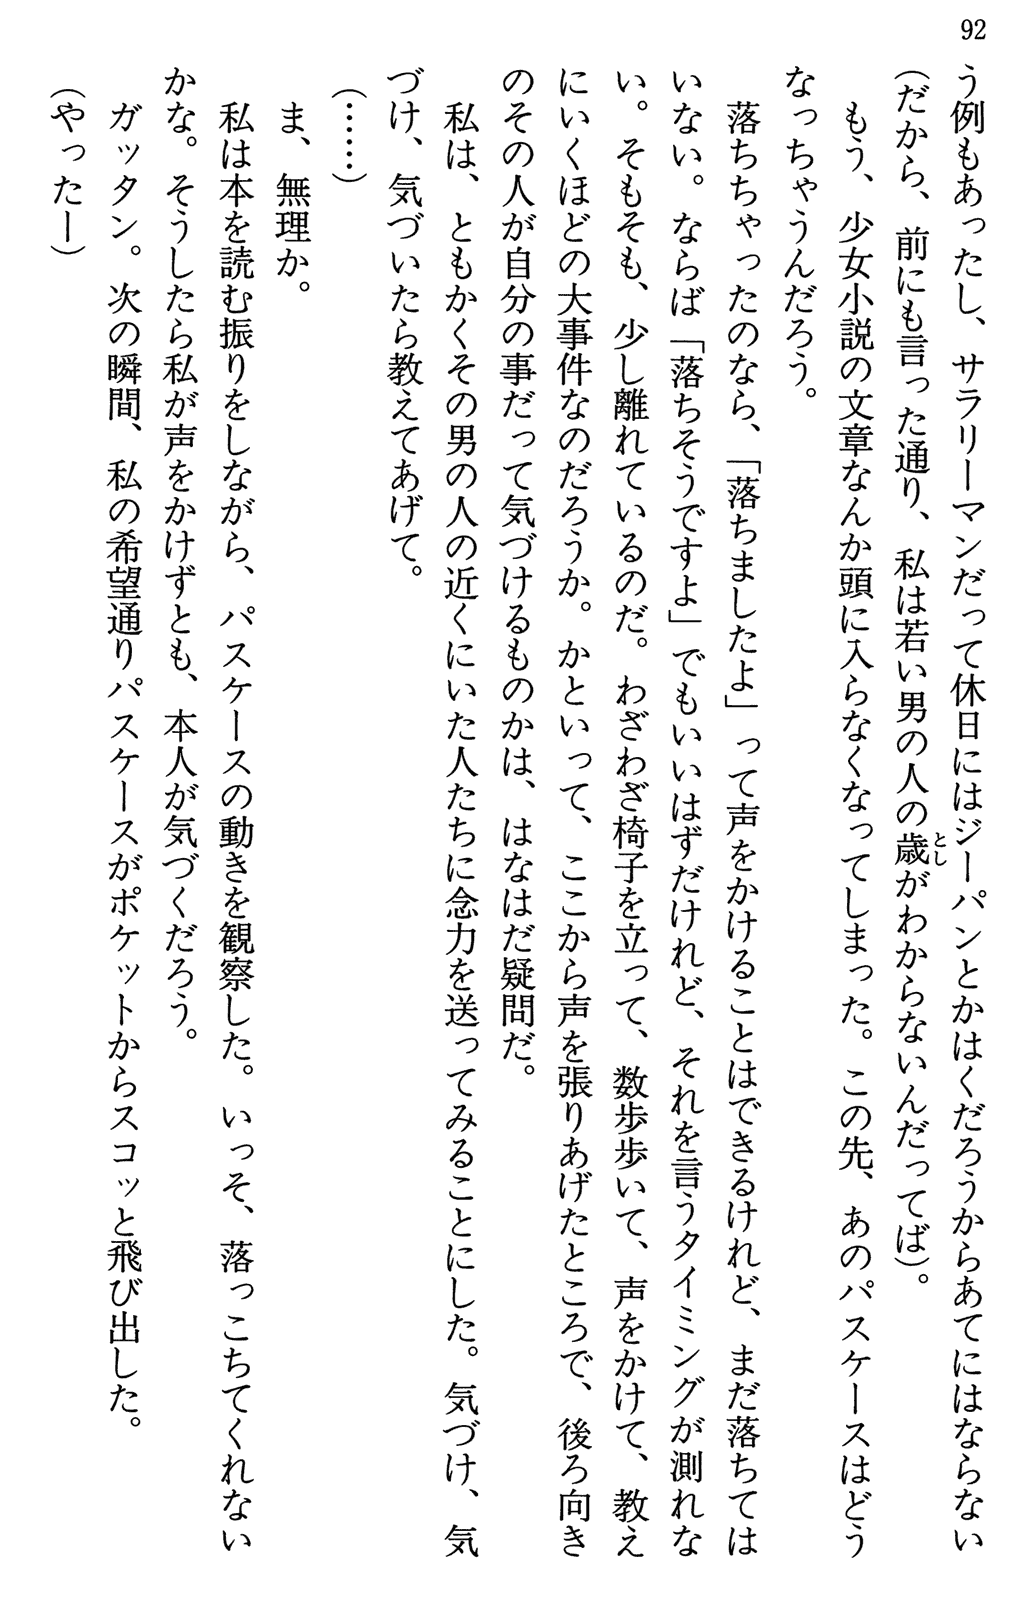 92
う例もあったし、サラリーマンだって休日にはジーパンとかはくだろうからあてにはならない
(だから、前にも言った通り、私は若い男の人の歳がわからないんだってば)。
とし
もう、少女小説の文章なんか頭に入らなくなってしまった。この先、あのパスケースはどう
なっちゃうんだろう。
落ちちゃったのなら、「落ちましたよ」って声をかけることはできるけれど、まだ落ちては
いない。ならば「落ちそうですよ」でもいいはずだけれど、それを言うタイミングが測れな
い。そもそも、少し離れているのだ。わざわざ椅子を立って、数歩歩いて、声をかけて、教え
にいくほどの大事件なのだろうか。かといって、ここから声を張りあげたところで、後ろ向き
のその人が自分の事だって気づけるものかは、はなはだ疑問だ。
私は、ともかくその男の人の近くにいた人たちに念力を送ってみることにした。気づけ、気
づけ、気づいたら教えてあげて。
(……)
ま、無理か。
私は本を読む振りをしながら、パスケースの動きを観察した。いっそ、落っこちてくれない
かな。そうしたら私が声をかけずとも、本人が気づくだろう。
ガッタン。次の瞬間、私の希望通りパスケースがポケットからスコッと飛び出した。
(やったー)